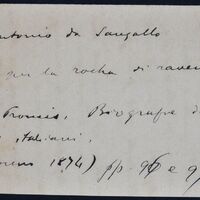 ntonio da Sangallo
per la rocha di raven
Promis, Biografie d
italiani,
1874) pp. 96 e 9